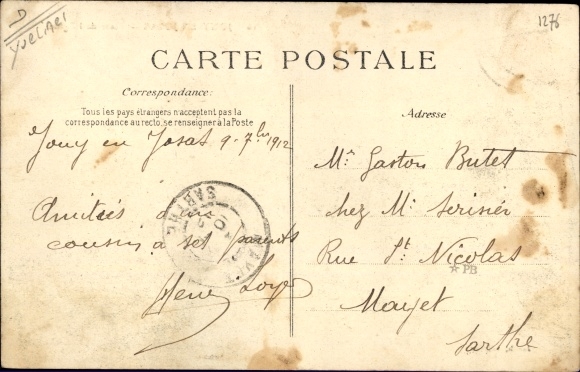 D
Yvelines
1276
CARTE POSTALE
Correspondance:
Tous les pays étrangers n'acceptent pas la
correspondance au recto, se renseigner à la Poste
Jouy en Josas 9. 7bre 1912
Amitiés d'un
cousin à ses parents
Henri
Adresse
Mr. Gaston Butet
chez Mr
Rue St. Nicolas
☆ PB
Mayet
Sarthe
MAYET
SARTHE